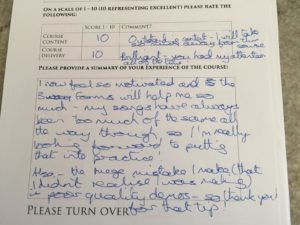 ON A SCALE OF 1 - 10 (10 REPRESENTING EXCELLENT) PLEASE RATE THE
FOLLOWING:
SCORE 1 - 10 COMMENT?
COURSE CONTENT 10 Outstanding content - I will take
away from your course
COURSE DELIVERY 10 Brilliant - you had my attention
PLEASE PROVIDE A SUMMARY OF YOUR EXPERIENCE OF THE COURSE:
I now feel so motivated and the
forms will help me so
much - my songs have always
been too much of the same all
the way through so I'm really
looking forward to putting
that into practice!
Also - the huge mistake I make (that
I didn't realise I was making)
is poor quality demos - so thank you
for that tip!
PLEASE TURN OVER